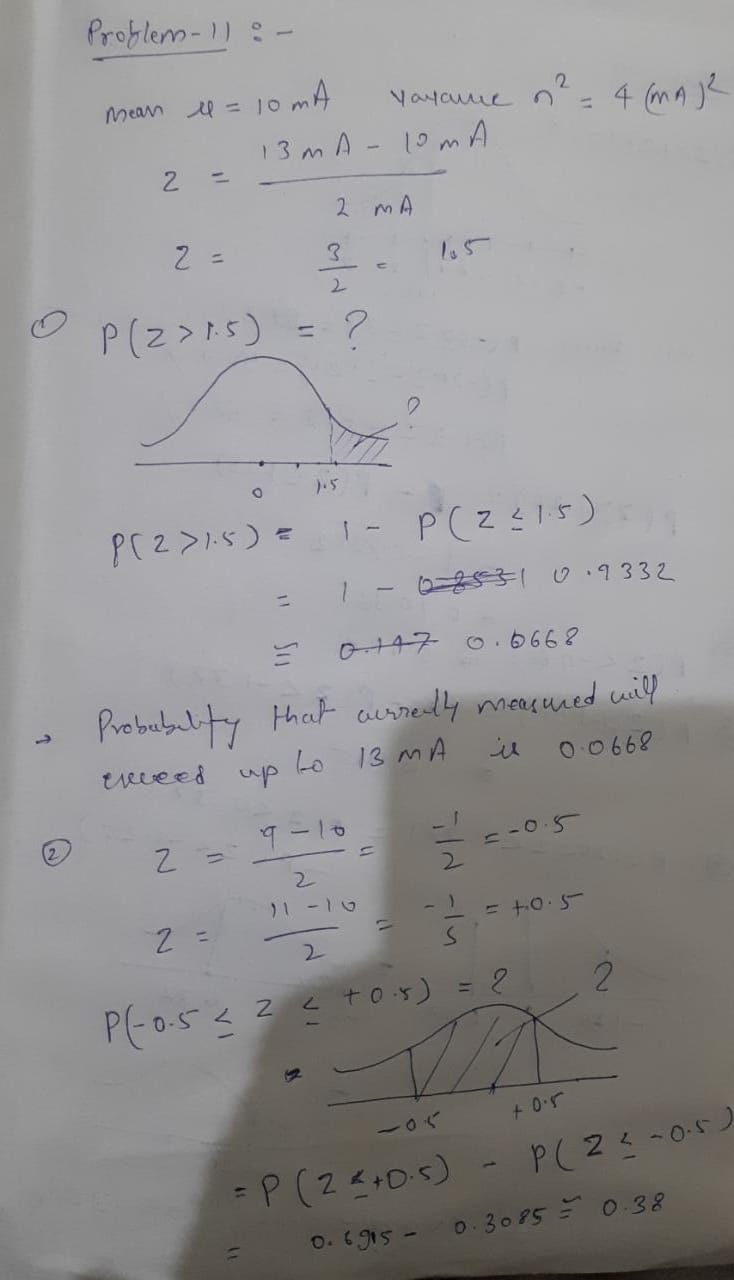 Problem-11 :-
mean μ = 10 mA variance σ² = 4 (mA)²
z = 13 mA - 10 mA / 2 mA
z = 3/2 = 1.5
① P(z > 1.5) = ?
?
0 1.5
P(z > 1.5) = 1 - P(z ≤ 1.5)
= 1 - 0.8531 0.9332
≅ 0.147 0.0668
→ Probability that currently measured will
exceed up to 13 mA is 0.0668
② z = 9 - 10 / 2 = -1/2 = -0.5
z = 11 - 10 / 2 = -1/5 = +0.5
P(-0.5 ≤ z ≤ +0.5) = ?
?
-0.5 +0.5
= P(z ≤ +0.5) - P(z ≤ -0.5)
= 0.6915 - 0.3085 ≅ 0.38